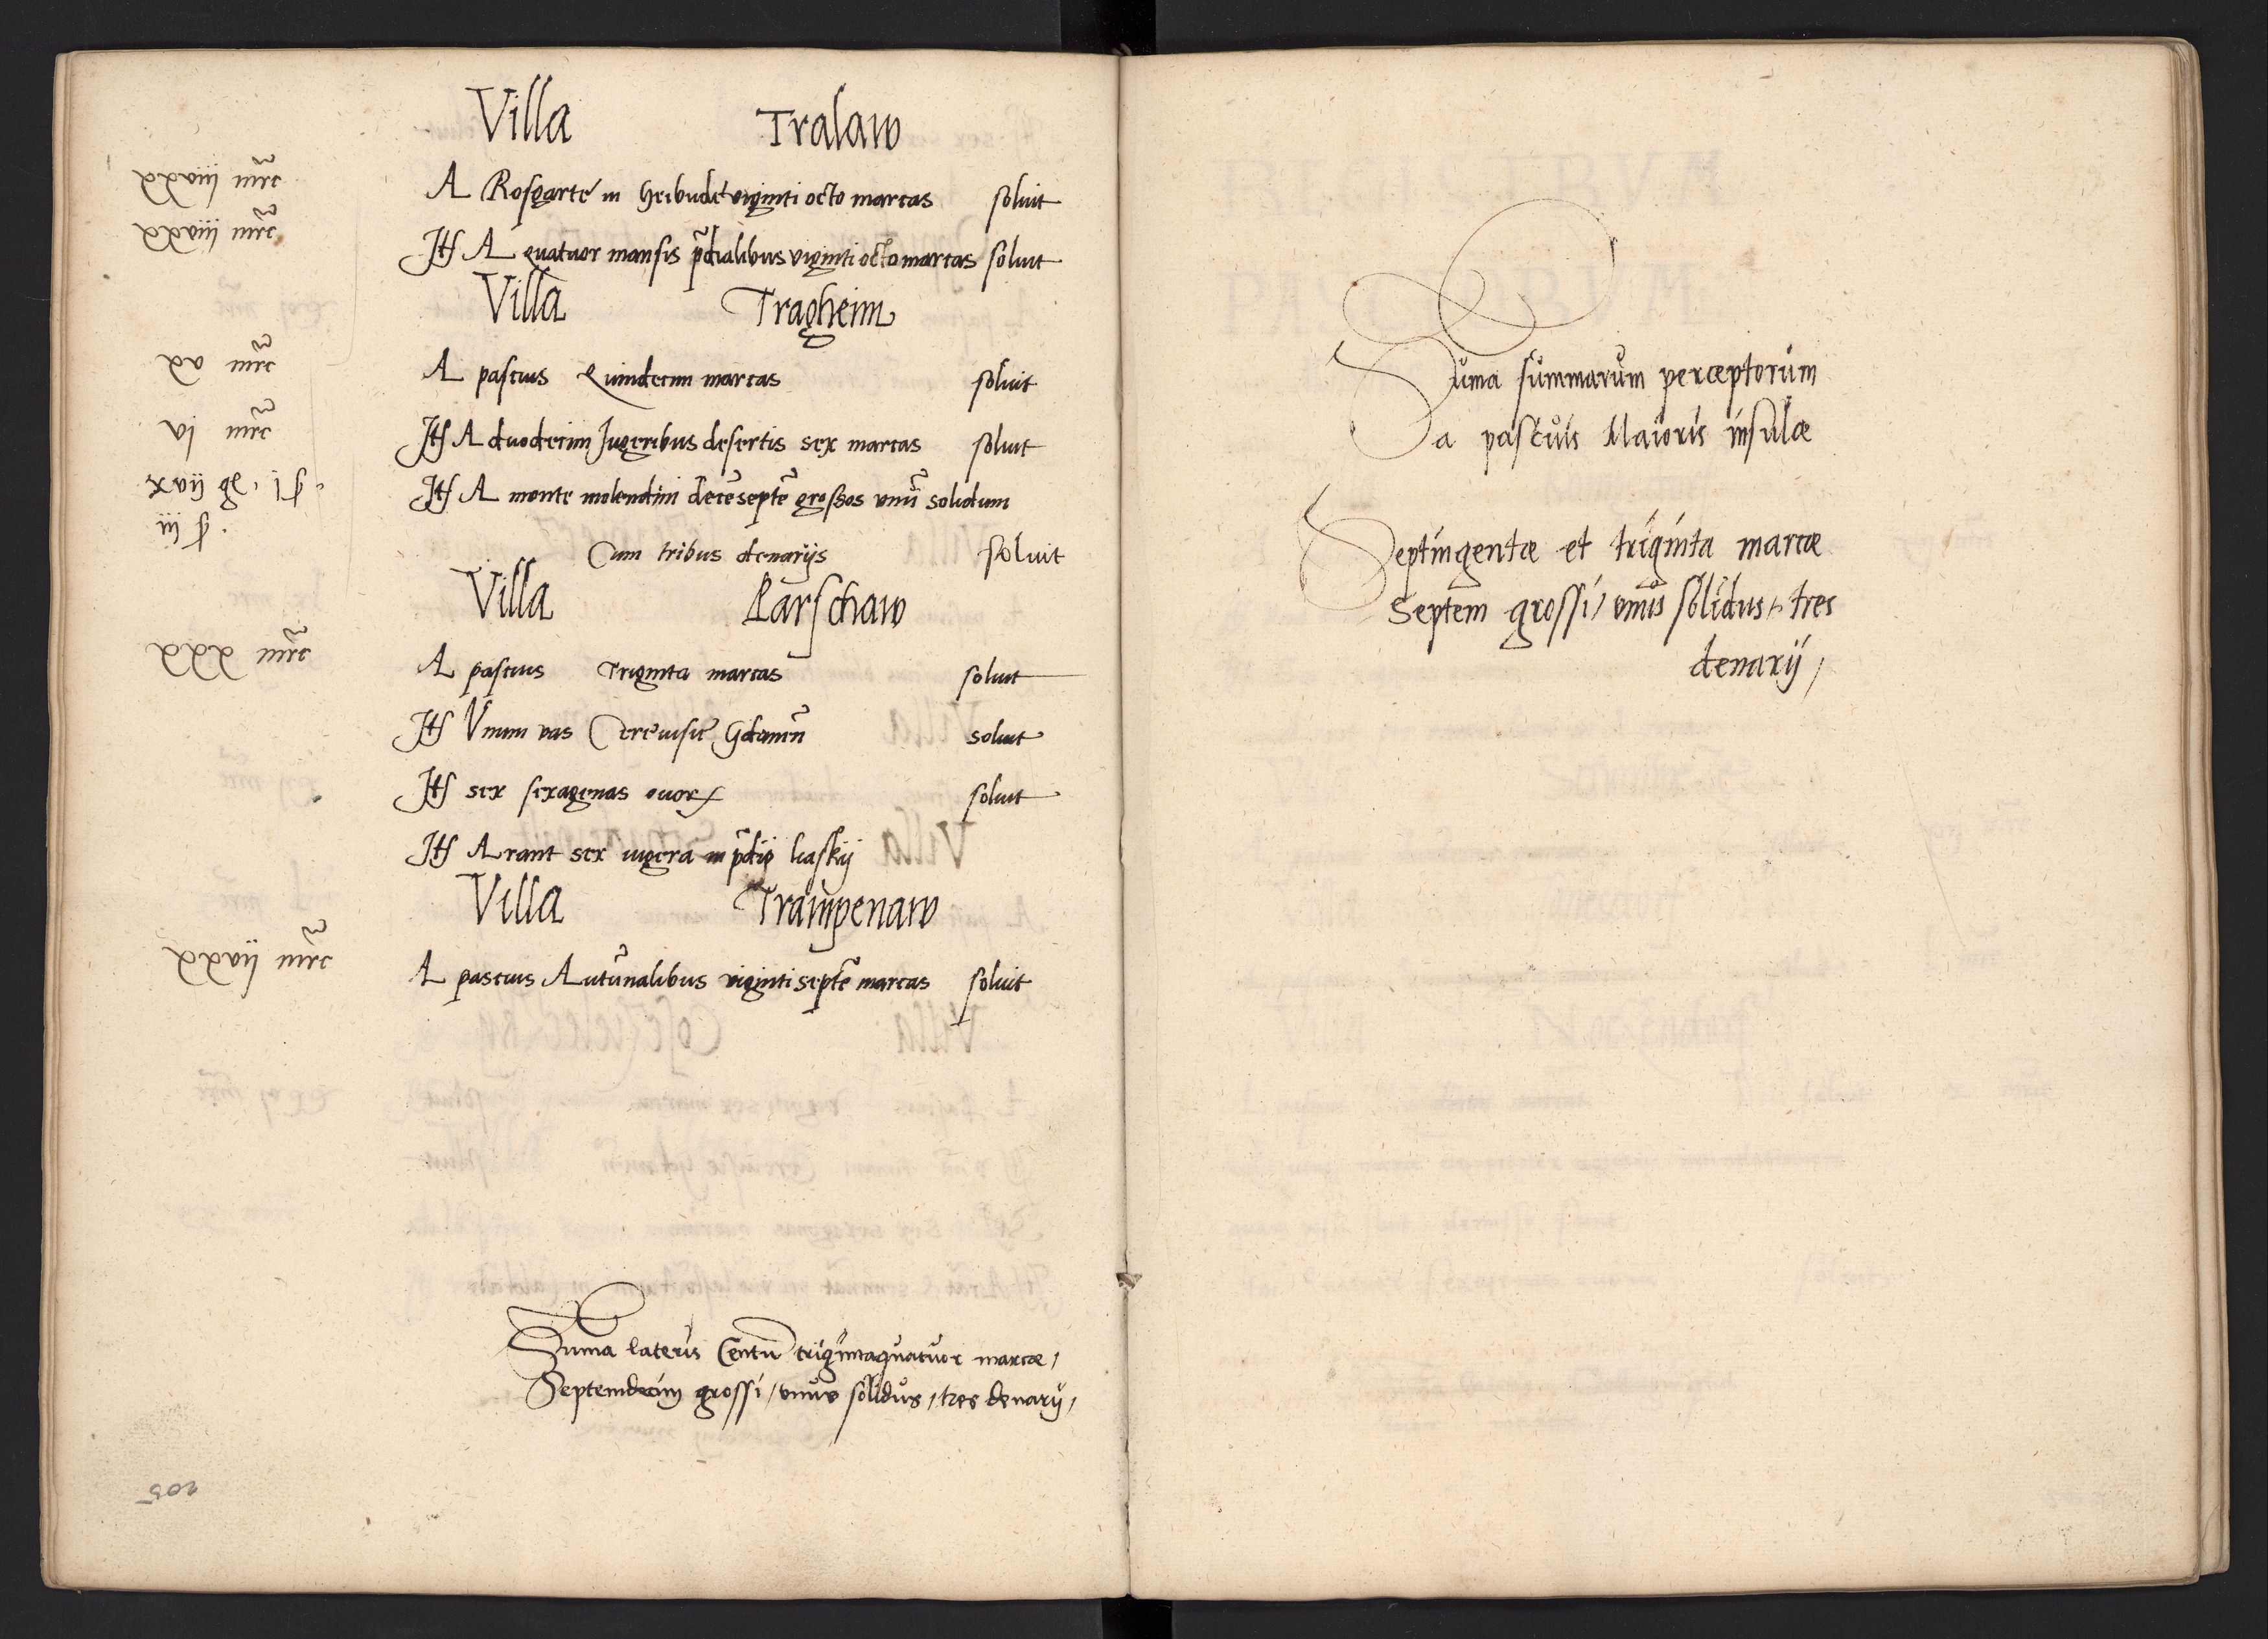 Villa Tralaw
xxviij mrc A Rosgarte in Heibude viginti octo marcas soluit
xxviij mrc Itē A quatuor mansis p̄dialibus viginti octo marcas soluit
Villa Tragheim
xv mrc A pascuis Quindecim marcas soluit
vi mrc Itē A duodecim Jugeribus desertis sex marcas soluit
xvij g i s Itē A monte molendini decēseptē grossos vnū solidum
iij Cum tribus denarijs soluit
Villa Parschaw
xxx mrc A pascuis Triginta marcas soluit
Itē Vnum vas Cereuisie Gdanen̄ soluit
Itē sex sexagenas ouor soluit
Itē Arant sex iugera in p̄dio laskij
Villa Trampenaw
xxvij mrc A pascuis Autūnalibus viginti septē marcas soluit
Suma lateris Centū trigintaquatuor marcæ /
Septemdecim grossi / vnus solidus / tres denarij /
205
Suma summarum perceptorum
a pascuis Maioris insulæ
Septingentæ et triginta marcæ
septem grossi / vnus solidus / tres
denarij /